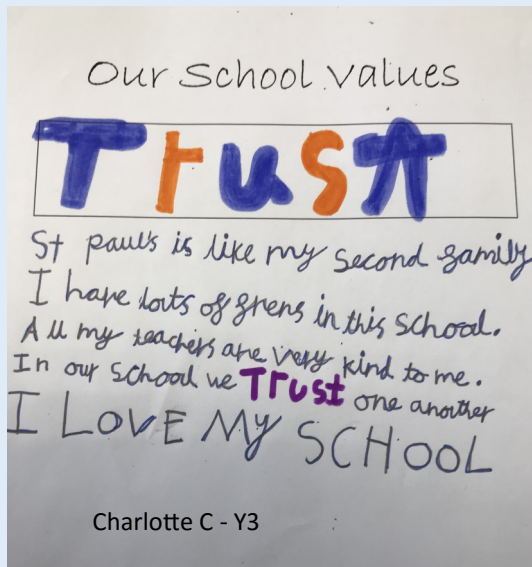 Our School Values
Trust
St paul's is like my second family
I have lots of frens in this school.
All my teachers are very kind to me.
In our school we Trust one another
I LOVE My SCHOOL
Charlotte C - Y3